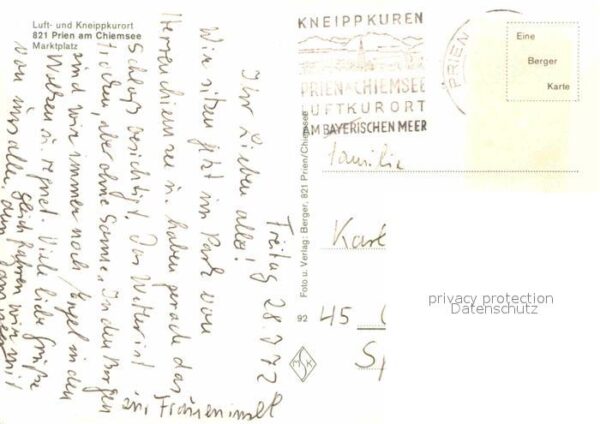 Luft- und Kneippkurort
821 Prien am Chiemsee
Marktplatz
KNEIPPKUREN
PRIEN A. CHIEMSEE
LUFTKURORT
AM BAYERISCHEN MEER
PRIEN
Eine
Berger
Karte
Freitag 28.7.72
Ihr Lieben alle!
Wir sitzen jetzt im Park von
Herrenchiemsee u. haben gerade das
Schloß besichtigt. Das Wetter ist
trocken, aber ohne Sonne. In den Bergen
sind wir immer noch Engel in den
Wolken u. regnet. Viele liebe Grüße
von uns allen,
gleich fahren wir mit
zur Fraueninsel
Foto u. Verlag: Berger, 821 Prien/Chiemsee
92
MSK
Familie
Karl
45
Sp
privacy protection
Datenschutz